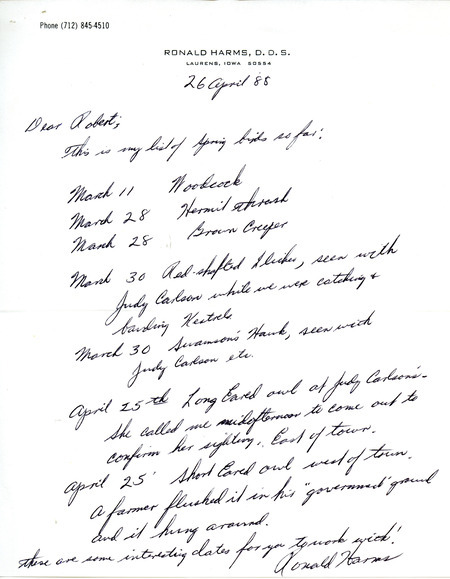 Phone (712) 845-4510
RONALD HARMS, D.D.S.
LAURENS, IOWA 50554
26 April 88
Dear Robert;
This is my list of spring birds so far:
March 11 Woodcock
March 28 Hermit thrush
March 28 Brown Creeper
March 30 Red-shafted Flicker, seen with
Judy Carlson while we were catching &
banding Kestrels
March 30 Swainson's Hawk, seen with
Judy Carlson etc.
April 25th Long Eared owl at Judy Carlson's-
she called me midafternoon to come out to
confirm her sighting. East of town.
April 25 Short Eared owl west of town.
A farmer flushed it in his "government"
and it hung around.
these are some interesting dates for you to work with!
Ronald Harms